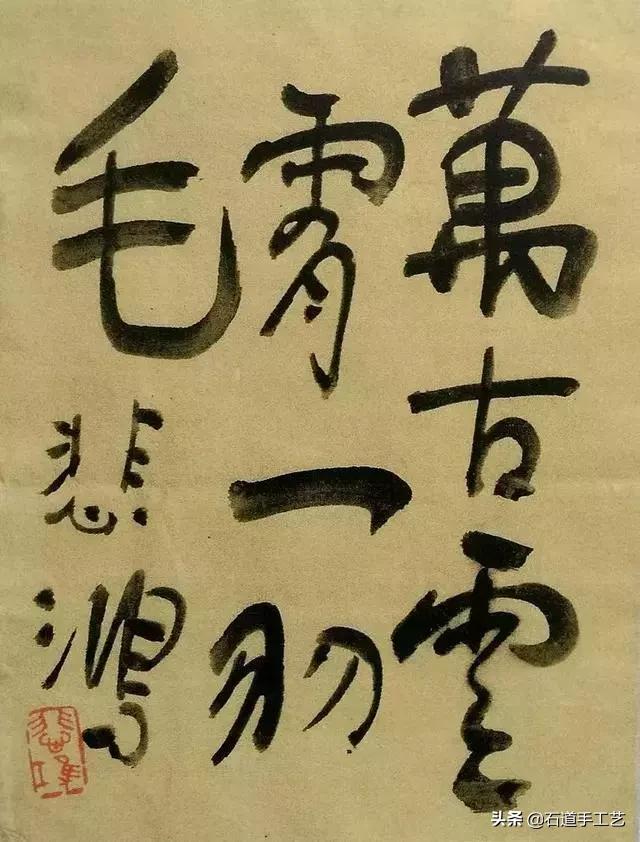 萬古雲
霄一羽
毛
悲鴻
头条 @石道手工艺